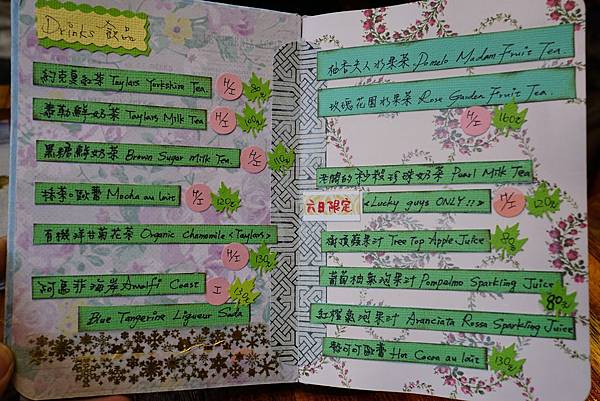 Drinks 飲品
約克夏紅茶 Taylors Yorkshire Tea.
H/I 80元
泰勒鮮奶茶 Taylors Milk Tea
H/I 100元
黑糖鮮奶茶 Brown Sugar Milk Tea.
H/I 110元
抹茶口歐蕾 Mocha au lait
H/I 120元
有機洋甘菊花茶 Organic Chamomile <Taylors>
H/I 130元
阿瑪菲海岸 Amalfi Coast
I
Blue Tangerine Liqueur Soda
柚香夫人水果茶 Pomelo Madam Fruit Tea.
玫瑰花園水果茶 Rose Garden Fruit Tea.
H/I 160元
老闆的秒殺珍珠奶茶 Pearl Milk Tea
六日限定 <Lucky guys ONLY!!> H/I 120元
樹頂蘋果汁 Tree Top Apple Juice
葡萄柚氣泡果汁 Pompelmo Sparkling Juice
80元
紅橙氣泡果汁 Aranciata Rossa Sparkling Juice
熱可可歐蕾 Hot Cocoa au lait 130元